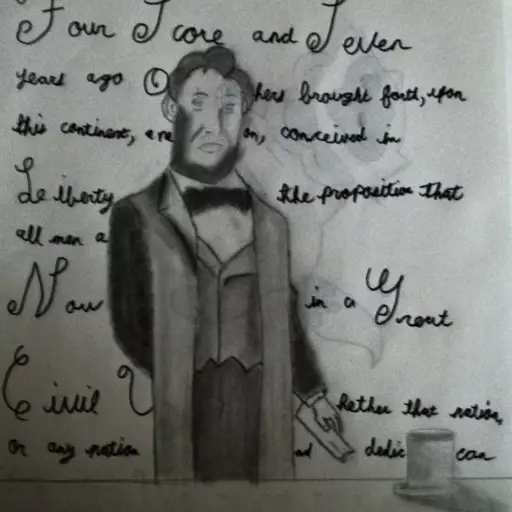 Four Score and Seven
years ago O hers brought forth, upon
this continent, a ne on, conceived in
Liberty the proposition that
all men a
Now in a Great
Civil hether that nation,
or any nation nd dedic can